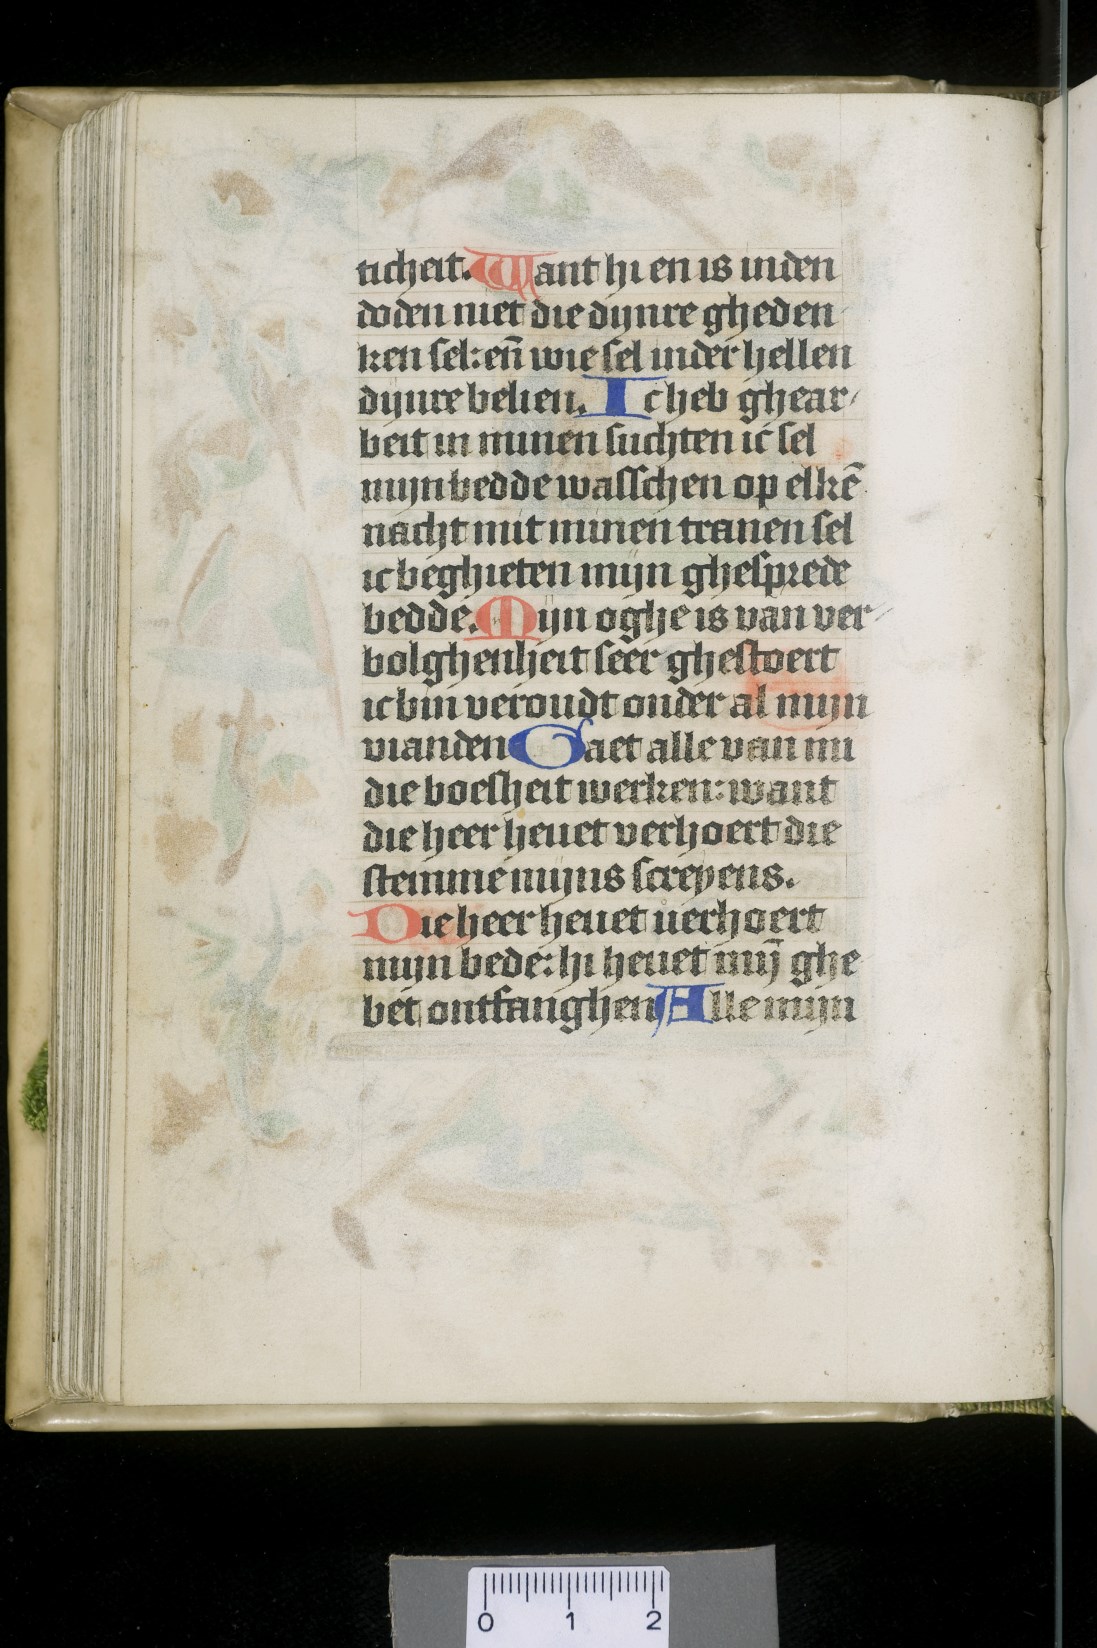 ticheit. Want hi en is in den
doden niet die dijnre gheden
ken sel: en̄ wie sel in der hellen
dijnre belien. Ic heb ghear/
beit in minen suchten ic sel
mijn bedde wasschen op elkē
nacht mit minen tranen sel
ic beghieten mijn ghesprede
bedde. Mijn oghe is van ver/
bolghenheit seer ghestoert
ic bin veroudt onder al mijn
vianden Gaet alle van mi
die boesheit werken: want
die heer heuet verhoert die
stemme mijns screyens.
Die heer heuet verhoert
mijn bede: hi heuet mij̄ ghe
bet ontfanghen Alle mijn
0 1 2